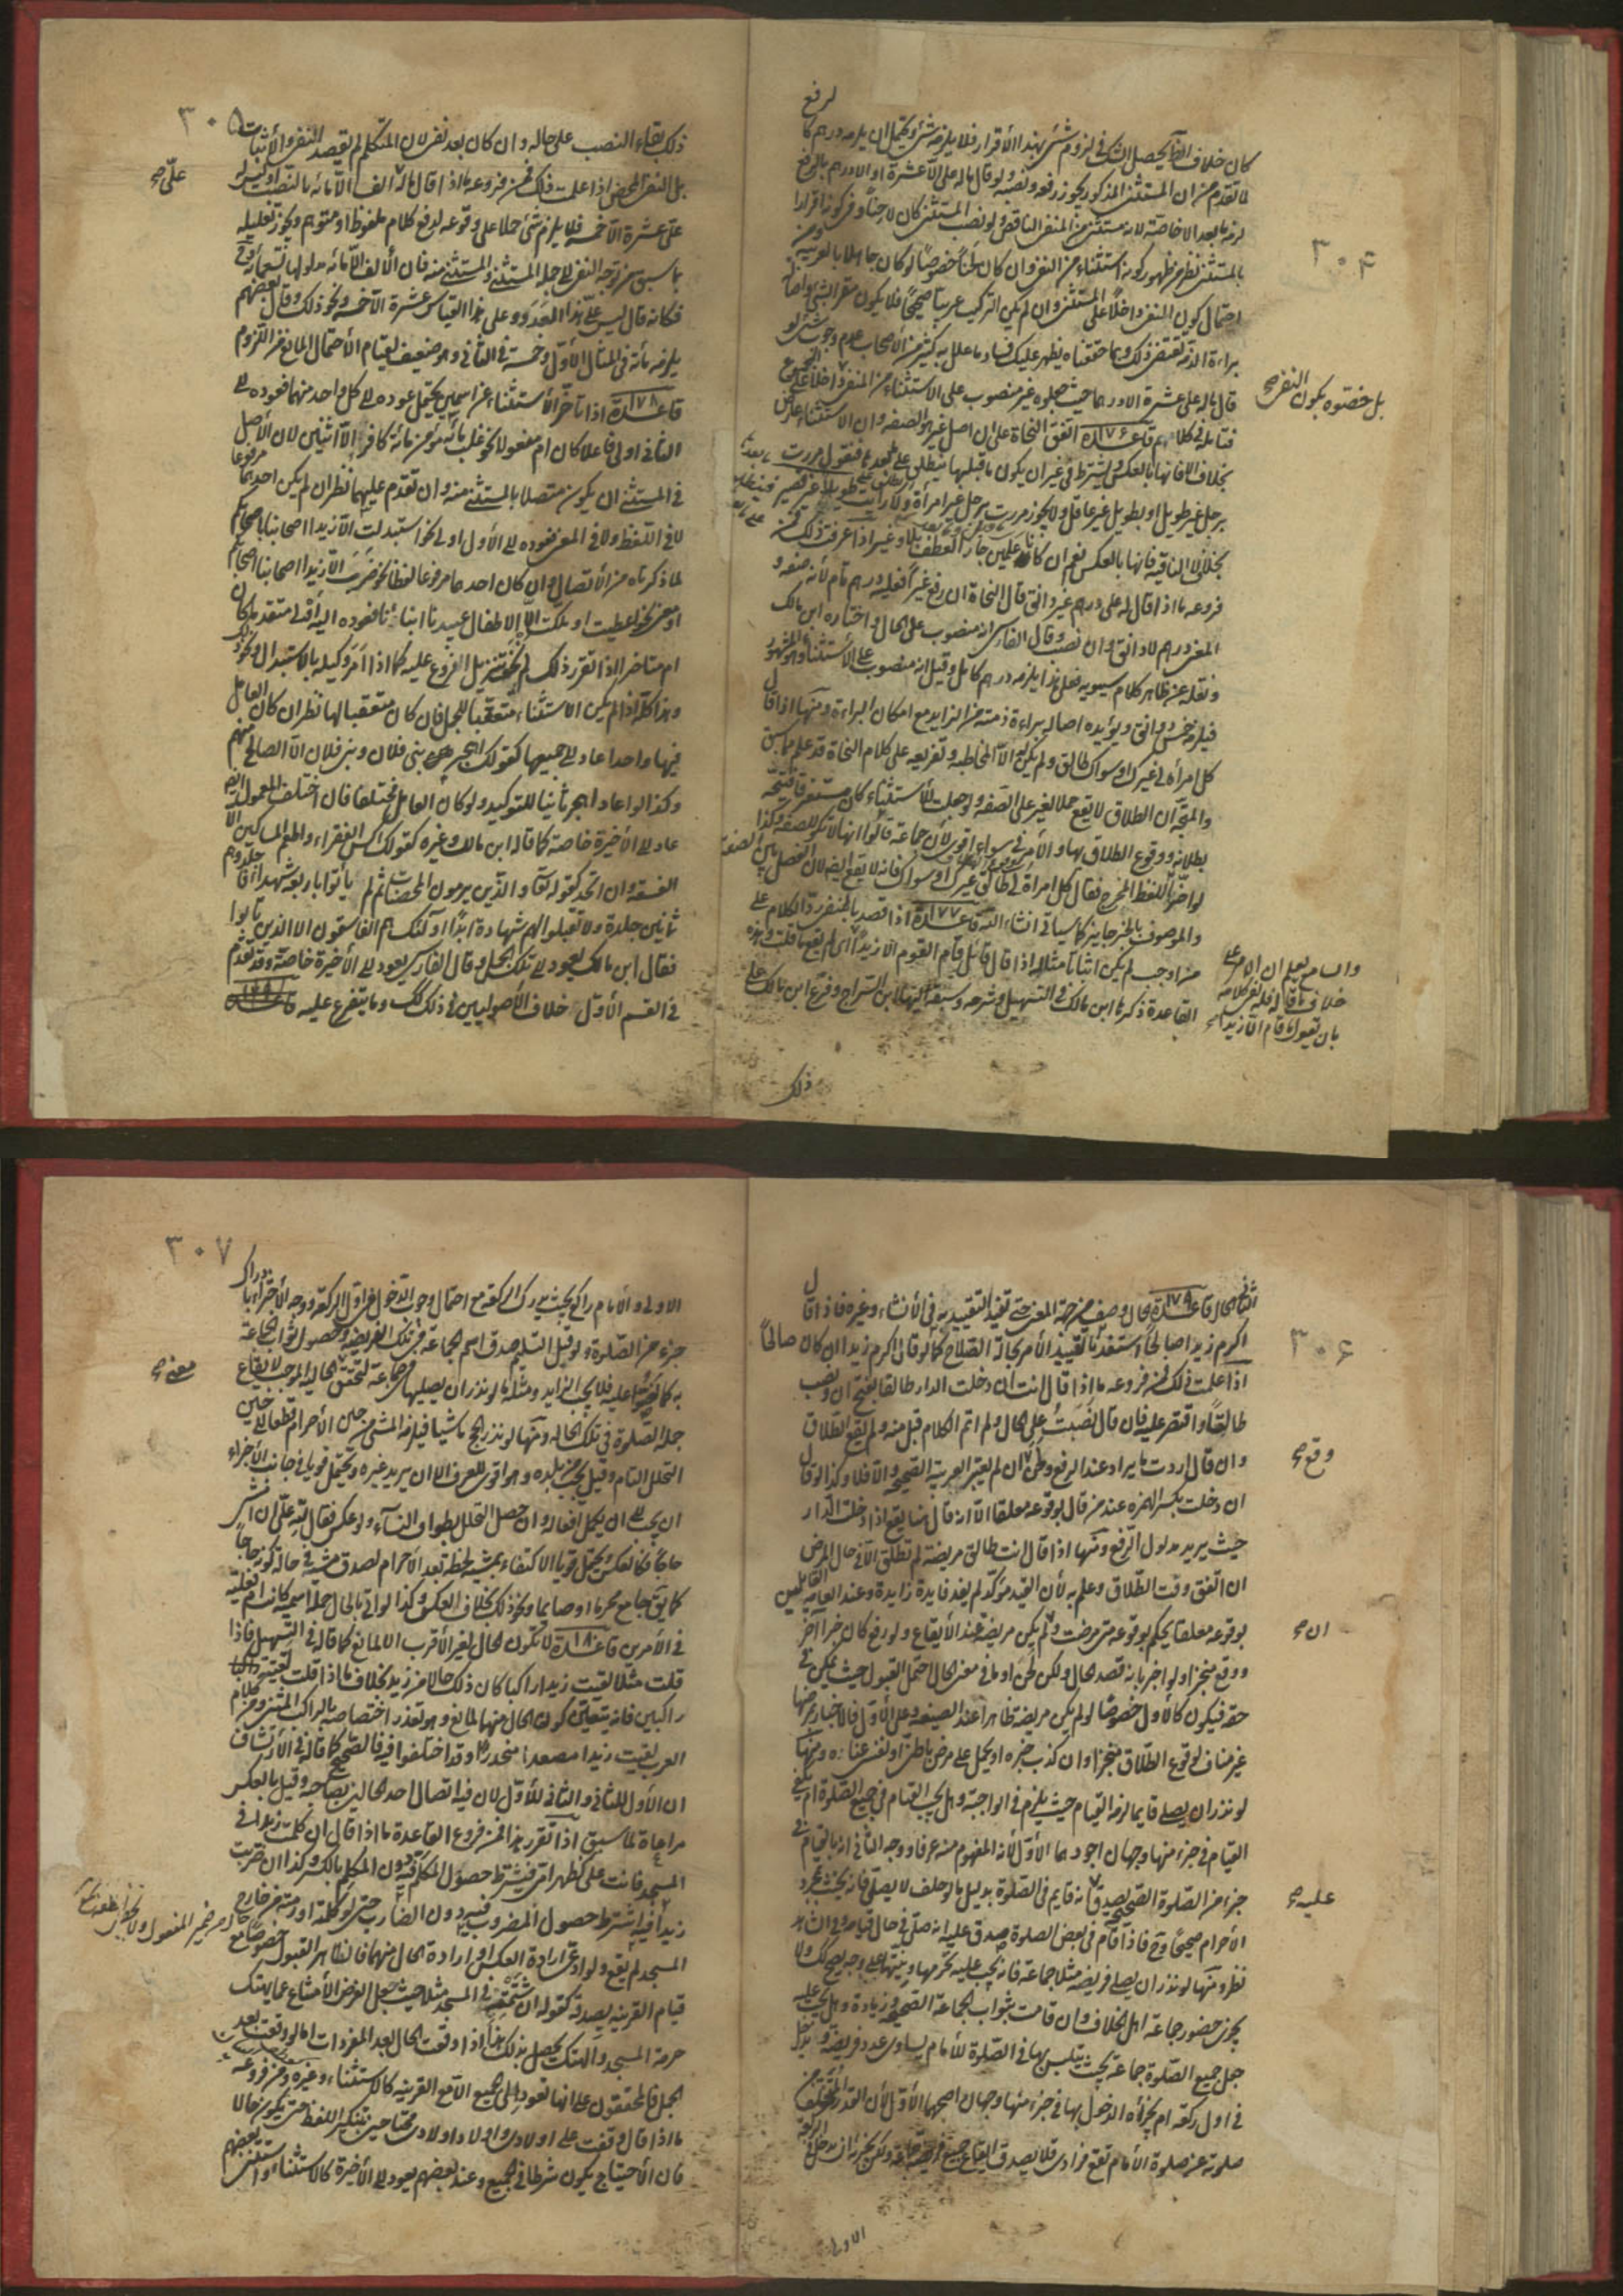 ٣٠۴
كان خلاف الظاهر يحصل الشك في لزوم شئ بهذا الأقرار فلا يلزمه شئ ويحتمل ان يلزمه درهم كما
لا تقدم من ان المستثنى المذكور يجوز رفعه ونصبه ولو قال ماله على الا عشرة او الا درهم بالرفع
لزمه ما بعد الا خاصة لانه مستثنى من المنفى الناقص ولو نصب المستثنى كان لاحنا وفى كونه اقرارا
بالمستثنى نظر من ظهور كونه استثناء من النفى وان كان لحنا خصوصا لو كان جاهلا بالعربية ومن
احتمال كون النفى داخلا على المستثنى وان لم يكن التركيب عربيا صحيحا فلا يكون مقرا بشئ واصالة
براءة الذمة تقتضى ذلك وبما حققناه يظهر عليك فساد ما علل به كثير من الأصحاب عدم وجوب شئ لو
قال ماله على عشرة الا درهما حيث جعلوه غير منصوب على الاستثناء من المنفى داخلا على المجموع
بل خصوه بكون النفى صح
فتأمل في كلامهم قاعدة ١٧۶ اتفق النحاة على ان اصل غير هو الصفة وان الاستثناء عارض
بخلاف الا فانها بالعكس ويشترط في غير ان يكون ما قبلها ينطلق على ما بعدها فتقول مررت
برجل غير طويل او بطويل غير عاقل ولا يجوز مررت برجل غير امرأة ولا رايت طويلا غير قصير
بخلاف لا النافية فانها بالعكس نعم ان كانا علمين جاز العطف بلا وغير اذا عرفت ذلك فمن
فروعه ما اذا قال له على درهم غير دانق قال النحاة ان رفع غيرا فعليه درهم تام لأنه صفة و
المعنى درهم لا دانق وان نصبت وقال الفارسى انه منصوب على الحال واختاره ابن مالك
ونقله عن ظاهر كلام سيبويه فعلى هذا يلزمه درهم كامل وقيل انه منصوب على الاستثناء وهو المشهور
فيلزمه خمس دوانق ويؤيده اصالة براءة ذمته من الزايد مع امكان البراءة ومنها اذا قال
كل امرأة لى غيرك او سواك طالق ولم يكن له الا المخاطبة وتفريعه على كلام النحاة قد علم مما سبق
والمتجه ان الطلاق لا يقع حملا لغير على الصفة ولو جعلت للأستثناء كان مستغرقا فيتجه
بطلانه ووقوع الطلاق بها والأمر في سواء اقوى لأن جماعة قالوا انها لا تكون للصفة وكذا
لو اخر اللفظ المخرج فقال كل امرأة لى طالق غيرك او سواك فانه لا يقع ايضا لان الفصل بين الصفة
والموصوف بالخبر جايز كما سياتى انشاء الله قاعدة ١٧٧ اذا قصد بالمنفى رد الكلام على
من اوجب لم يكن اثباتا مثاله اذا قال قائل قام القوم الا زيدا اى لم يقع ما قلت وهذه
والسامع يعلم ان الامر على
خلاف ما قاله فله نفى كلامه
بان يقول ما قام الا زيدا صح
القاعدة ذكرها ابن مالك في التسهيل وشرحه وسبقه اليها ابن السراج وفرع ابن مالك على
ذلك
٣٠۵
ذلك بقاء النصب على حاله وان كان بعد نفى لان المتكلم لم يقصد النفى والأثبات
بل النفى المحض اذا علمت ذلك فمن فروعه ما اذا قال ماله الف الا مائة بالنصب او ليس له
علىّ صح
على عشرة الا خمسة فلا يلزم شئ حملا على وقوعه لرفع كلام ملفوظ او متوهم ويجوز تعليله
بما سبق من توجه النفى الى جملة المستثنى والمستثنى منه فان الألف الا مائة مدلولها تسعمائة
فكانه قال ليس على هذا العدد وعلى هذا القياس عشرة الا خمسة ونحو ذلك وقال بعضهم
يلزمه مأة في المثال الأول وخمسة في الثاني وهو ضعيف لقيام الأحتمال المانع من اللزوم
قاعدة ١٧٨ اذا تأخر الأستثناء عن اسمين يحتمل عوده الى كل واحد منهما فعوده الى
الثانى اولى فاعلا كان ام مفعولا نحو غلب مأة مؤمن مائة كافر الا اثنين لان الأصل
في المستثنى ان يكون متصلا بالمستثنى منه وان تقدم عليهما نظر ان لم يكن احدهما مرفوعا
لا في اللفظ ولا في المعنى فعوده الى الأول اولى نحو استبدلت الا زيدا اصحابنا باصحابكم
لما ذكرناه من الأتصال وان كان احدهما مرفوعا لفظا نحو ضرب الا زيدا اصحابنا اصحابكم
او معنى نحو اعطيت او ملكت الا الاطفال عبيدنا ابناءنا فعوده اليه اولى متقدما كان
ام متاخرا اذا تقرر ذلك لم يخف تنزيل الفروع عليه كما اذا امر وكيله بالاستبدال ونحو ذلك
وهذا كله اذا لم يكن الاستثناء متعقبا للجمل فان كان متعقبا لها نظر ان كان العامل
فيها واحدا عاد الى جميعها كقولك اهجر بنى فلان وبنى فلان الا الصالح منهم
وكذا لو اعاد اهجر ثانيا للتوكيد ولو كان العامل مختلفا فان اختلف المعمول ايضا
عاد الى الأخيرة خاصة كما قاله ابن مالك وغيره كقولك اكس الفقراء واطعم المساكين الا
الفسقة وان اتحد كقوله تعالى والذين يرمون المحصنات ثم لم يأتوا باربعة شهداء فاجلدوهم
ثمانين جلدة ولا تقبلوا لهم شهادة ابدا اولئك هم الفاسقون الا الذين تابوا
فقال ابن مالك يعود الى تلك الجمل وقال الفارسى يعود الى الأخيرة خاصة وقد تقدم
في القسم الأول خلاف الأصوليين في ذلك وما يتفرع عليه
٣٠۶
قاعدة ١٧٩ الحال وصف من جهة المعنى حتى تفيد التقييد به في الأنشاء وغيره فاذا قال
اكرم زيدا صالحا استفدنا تقييد الأمر بحالة الصلاح كما لو قال اكرم زيدا ان كان صالحا
اذا علمت ذلك فمن فروعه ما اذا قال انت ان دخلت الدار طالقا بفتح ان ونصب
طالقا واقتصر عليه فان قال نصبت على الحال ولم اتم الكلام قبل منه ولم يقع الطلاق
وان قال اردت ما يراد عند الرفع وطئ ان لم يعتبر العربية الصحيحة والا فلا وكذا لو قال
وقع صح
ان دخلت بكسر الهمزة عند من قال بوقوعه معلقا الا انه قال هنا يقع اذا دخلت الدار
حيث يريد مدلول الرفع ومنها اذا قال انت طالق مريضة لم تطلق الا في حال المرض
ان اتفق وقت الطلاق وعلم به لأن القيد مؤكد لم يفد فايدة زايدة وعند العامة القائلين
بوقوعه معلقا يحكم بوقوعه متى مرضت ولم يكن مريضة عند الأيقاع ولو رفع كان خبرا آخر
ان صح
ووقع منجزا ولو اخبر بانه قصد الحال ولكن لحن اوما في معنى الحال احتمل القبول حيث يمكن في
حقه فيكون كالأول خصوصا لو لم يكن مريضة ظاهرا عند الصيغة وعلى الأول فالاخبار بمرضها
غير مناف لوقوع الطلاق منجزا وان كذب خبره او يحمل على مرض باطنى او نفسى ومنها
لو نذر ان يصلى قايما لزمه القيام حيث يلزم في الواجبة وهل يجب القيام في جميع الصلوة ام يكفى
القيام في جزء منها وجهان اجودهما الأول لأنه المفهوم منه عرفا ووجه الثانى انه بالقيام في
جزء من الصلوة الصحيحة يصدق انه قايم في الصلوة بدليل ما لو حلف لا يصلى فانه يحنث بمجرد
عليه صح
الأحرام صحيحا وح فاذا قام في بعض الصلوة صدق عليه انه صلى في حال قيامه وفى الشاهد
نظر ومنها لو نذر ان يصلى فريضة مثلا جماعة فانه يجب عليه تحريمها ونيتها على وجه يصح ولا
يجزى حضور جماعة اهل الخلاف وان قامت بثواب الجماعة الصحيحة وزيادة وهل يجب عليه
جعل جميع الصلوة جماعة بحيث يتلبس بها في الصلوة للأمام يساوى عدد فريضته ويدخل
في اول ركعة ام يجزئه الدخول بها في جزء منها وجهان اصحهما الأول لأن القدر المتخلف من
صلوته عن صلوة الأمام تقع فرادى فلا يصدق ايقاع جميع فريضته جماعة ولكن يجزيه ان يدخل في الركعة
الاولى
٣٠٧
الاولى والأمام راكع بحيث يدرك الركعة مع احتمال وجوب الدخول من اول الركعة ووجه الأجتزاء بادراك
جزء من الصلوة ولو قبل التسليم صدق اسم الجماعة في تلك الفريضة وحصول ثواب الجماعة
به كما نصوا عليه فلا يجب الزايد ومثله ما لو نذر ان يصليها في جماعة لتحقق الحالية الموجب لايقاع
معنى صح
جملة الصلوة في تلك الحالة ومنها لو نذر الحج ماشيا فيلزمه المشى من حين الأحرام قطعا الى حين
التحلل التام وقيل يجب من بلده وهو اقوى للعرف الا ان يريد غيره ويحتمل قويا في جانب الأجزاء
ان يجب الى ان يكمل أفعاله وان حصل التحلل بطواف النساء ولو عكس فقال لله على ان امشى
حاجا فكالعكس ويحتمل قويا الاكتفاء بمشيه لحظة بعد الأحرام لصدق مشيه في حالة كونه حاجا
كما يق جامع محرما او صايما ونحو ذلك بخلاف العكس وكذا لو اتى بالحال جملة اسمية كانت ام فعلية
في الأمرين قاعدة ١٨٠ لا تكون الحال لغير الأقرب الا لمانع كما قاله في التسهيل فاذا
قلت مثلا لقيت زيدا راكبا كان ذلك حالا من زيد بخلاف ما اذا قلت لقيتنى
راكبين فانه يتعين كون الحال منهما لمانع وهو تعذر اختصاصه بالراكب المثنى ومن كلام
العرب لقيت زيدا مصعدا منحدرا وقد اختلفوا فيه فالصحيح كما قاله في الأرتشاف
ان الأول للثانى والثانى للأول لان فيه اتصال احد الحالين بصاحبه وقيل بالعكس
مراعاة لما سبق اذا تقرر هذا فمن فروع القاعدة ما اذا قال ان كلمت زيدا في
المسجد فانت على كظهر امى فيشترط حصول المكلم فيه دون المكلم بالكسر وكذا ان ضربت
زيدا فيه اشترط حصول المضروب فيه دون الضارب حتى لو كلمه او رمته من خارج
المسجد لم يقع ولو ادعى ارادة العكس او ارادة الحال منهما فالظاهر القبول خصوصا مع
قيام القرينة بصدقه كقوله ان شتمته في المسجد مثلا حيث جعل الغرض الأمتناع عما يهتك
حرمة المسجد والهتك يحصل بذلك هذا اذا وقعت الحال بعد المفردات اما لو وقعت بعد
الجمل فالمحققون على انها تعود الى الجميع الا مع القرينة كالاستثناء وغيره ومن فروعه
ما اذا قال وقفت على اولادى واولاد اولادى محتاجين بتنكير اللفظ حتى يكون حالا
فان الأحتياج يكون شرطا في الجميع وعند بعضهم يعود الى الأخيرة كالاستثناء واستثنى بعضهم